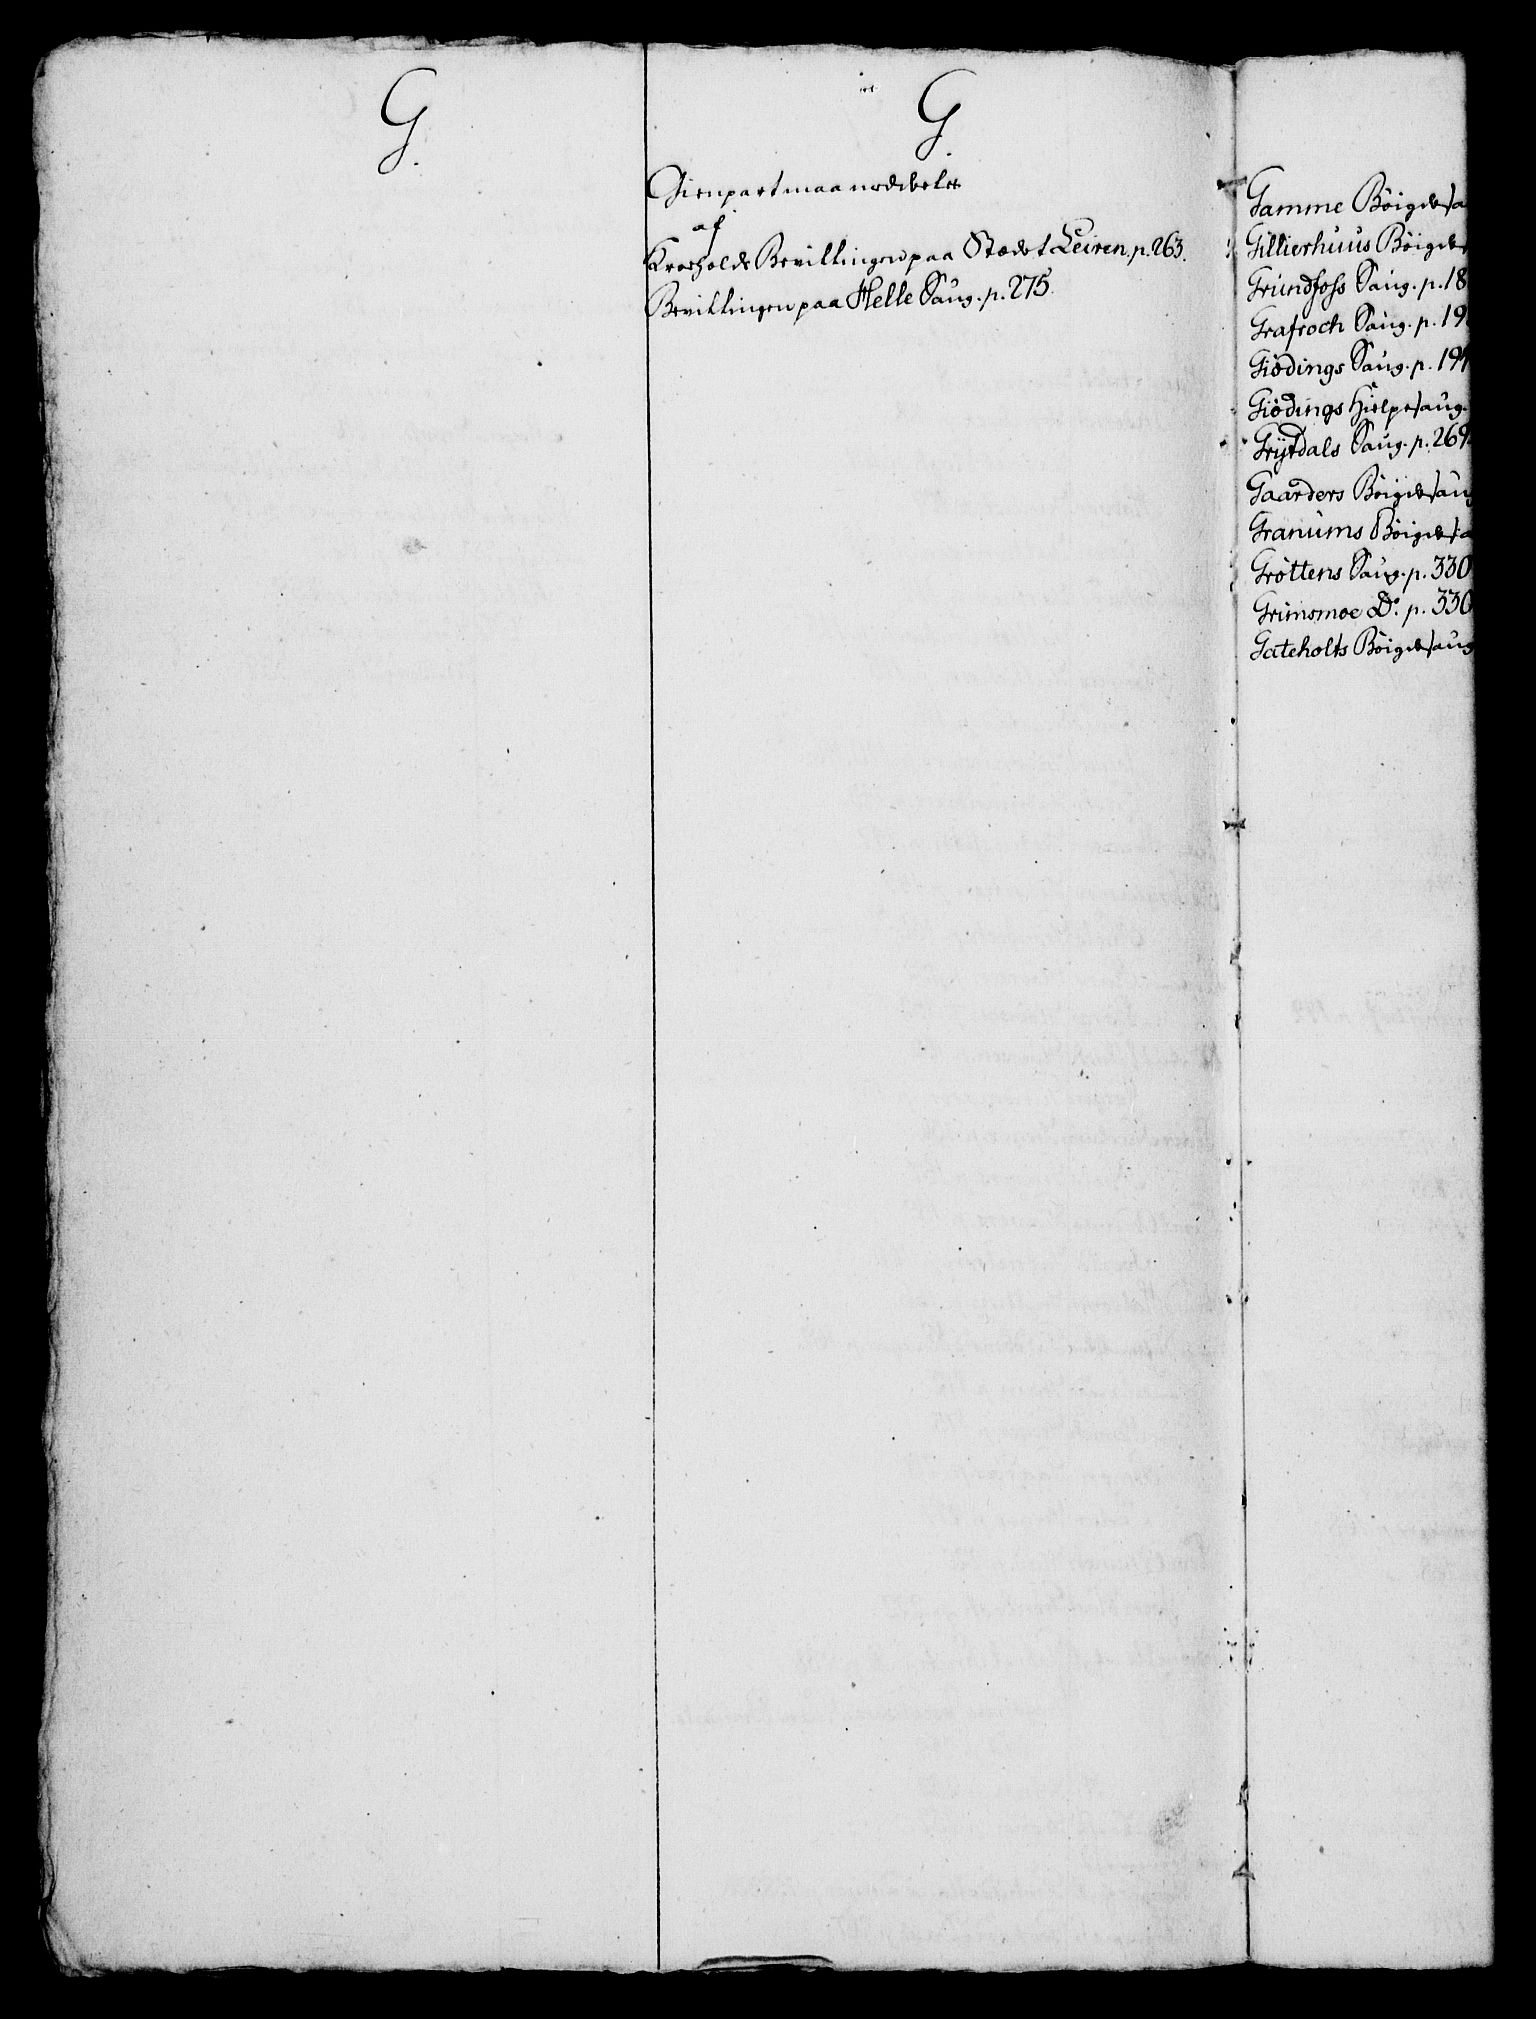 G.
G.
Gienpart meddeelt
af
Krosholds Bevillingen paa Stædet Leiren. p. 263.
Bevillingen paa Helle Saug. p. 275.
Gamme Böigde sa
Gillierhuus Böigde
Grundfoss Saug. p. 18
Grafroch Saug. p. 19
Giödings Saug. p. 19
Giödings Hielpesaug.
Grÿtdals Saug. p. 269
Gaarders Böigdesaug
Granums Böigdesa
Gröttens Saug. p. 330
Grimsmoe Do. p. 330
Gateholts Böigdesaug